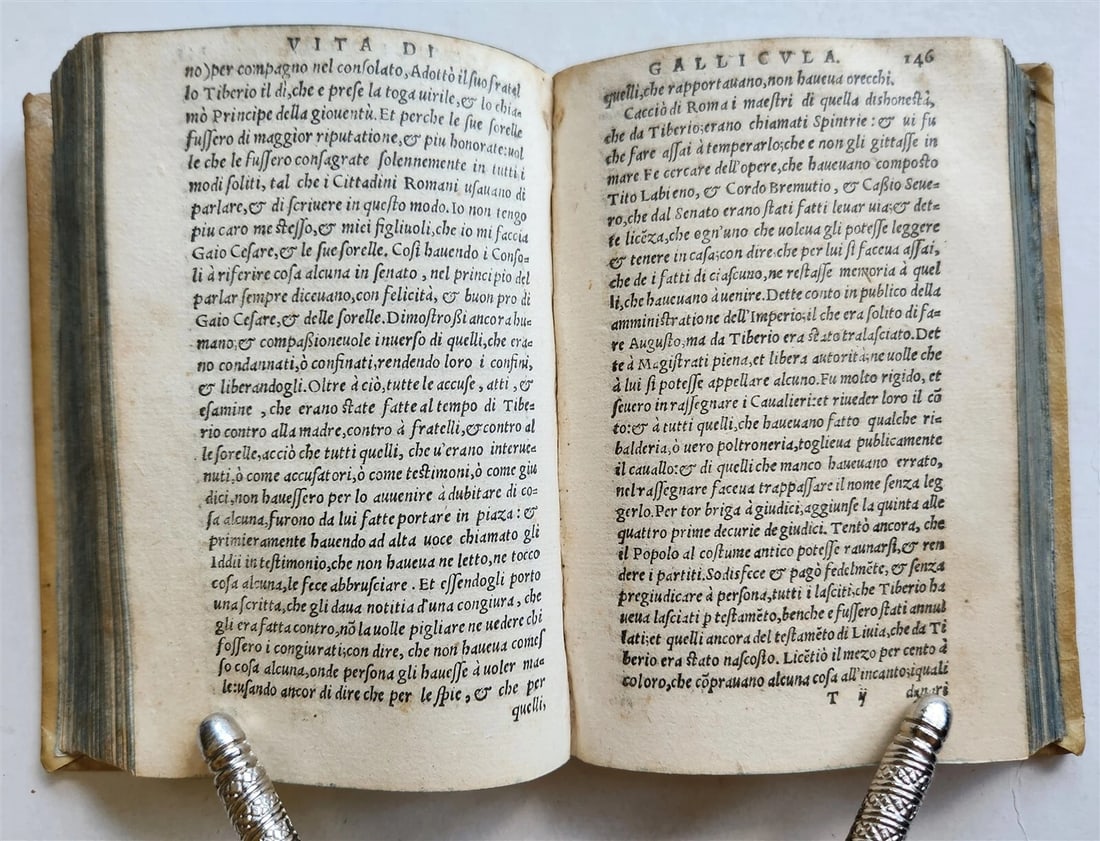 VITA DI
no)per compagno nel conſolato, Adottò il ſuo fratel
lo Tiberio il dì, che e preſe la toga uirile, & lo chia=
mò Principe della giouentù. Et perche le ſue ſorelle
fuſſero di maggior riputatione, & piu honorate: uol
le che le fuſſero conſagrate ſolennemente in tutti i
modi ſoliti, tal che i Cittadini Romani uſauano di
parlare, & di ſcriuere in queſto modo. Io non tengo
piu caro me ſteſſo, & miei figliuoli, che io mi faccia
Gaio Ceſare, & le ſue ſorelle. Coſi hauendo i Conſo=
li à riferire coſa alcuna in ſenato, nel principio del
parlar ſempre diceuano, con felicità, & buon pro di
Gaio Ceſare, & delle ſorelle. Dimoſtroßi ancora hu=
mano, & compaßioneuole inuerſo di quelli, che era=
no condannati, ò confinati, rendendo loro i confini,
& liberandogli. Oltre à ciò, tutte le accuſe, atti, &
eſamine, che erano ſtate fatte al tempo di Tibe=
rio contro alla madre, contro à fratelli, & contro al
le ſorelle, acciò che tutti quelli, che u'erano interue=
nuti, ò come accuſatori, ò come teſtimoni, ò come giu
dici, non haueſſero per lo auuenire à dubitare di co=
ſa alcuna, furono da lui fatte portare in piaza: &
primieramente hauendo ad alta uoce chiamato gli
Iddii in teſtimonio, che non haueua ne letto, ne tocco
coſa alcuna, le fece abbruſciare. Et eſſendogli porto
una ſcritta, che gli daua notitia d'una congiura, che
gli era fatta contro, nõ la uolle pigliare ne uedere chi
foſſero i congiurati; con dire, che non haueua comeſ
ſo coſa alcuna, onde perſona gli haueſſe à uoler ma=
le: uſando ancor di dire che per le ſpie, & che per
quelli,
GALLICVLA. 146
quelli, che rapportauano, non haueua orecchi.
Cacciò di Roma i maeſtri di quella dishoneſtà,
che da Tiberio; erano chiamati Spintrie: & ui fu
che fare aſſai à temperarlo; che e non gli gittaſſe in
mare Fe cercare dell'opere, che haueuano compoſto
Tito Labieno, & Cordo Bremutio, & Caßio Seue=
ro, che dal Senato erano ſtati fatti leuar uia; & det=
te licẽza, che ogn'uno che uoleua gli poteſſe leggere
& tenere in caſa; con dire: che per lui ſi faceua aſſai,
che de i fatti di ciaſcuno, ne reſtaſſe memoria à quel
li, che haueuano à uenire. Dette conto in publico della
amminiſtratione dell'Imperio; il che era ſolito di fa=
re Auguſto; ma da Tiberio era ſtato tralaſciato. Det
te à Magiſtrati piena, et libera autorità; ne uolle che
à lui ſi poteſſe appellare alcuno. Fu molto rigido, et
ſeuero in raſſegnare i Caualieri: et riueder loro il cõ
to: & à tutti quelli, che haueuano fatto qualche ri=
balderia, ò uero poltroneria, toglieua publicamente
il cauallo: & di quelli che manco haueuano errato,
nel raſſegnare faceua trappaſſare il nome ſenza leg
gerlo. Per tor briga à giudici, aggiunſe la quinta alle
quattro prime decurie de giudici. Tentò ancora, che
il Popolo al coſtume antico poteſſe raunarſi, & ren
dere i partiti. Sodisfece & pagò fedelmẽte, & ſenza
pregiudicare à perſona, tutti i laſciti, che Tiberio ha
ueua laſciati p teſtamẽto, benche e fuſſero ſtati annul
lati; et quelli ancora del teſtamẽto di Liuia, che da Ti
berio era ſtato naſcoſto. Licẽtiò il mezo per cento à
coloro, che cõprauano alcuna coſa all'incanto; iquali
T ij danari